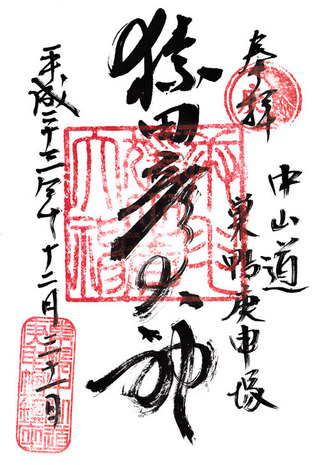 奉拝
中山道
巣鴨庚申塚
猿田彦大神
平成二十三年十二月二十一日